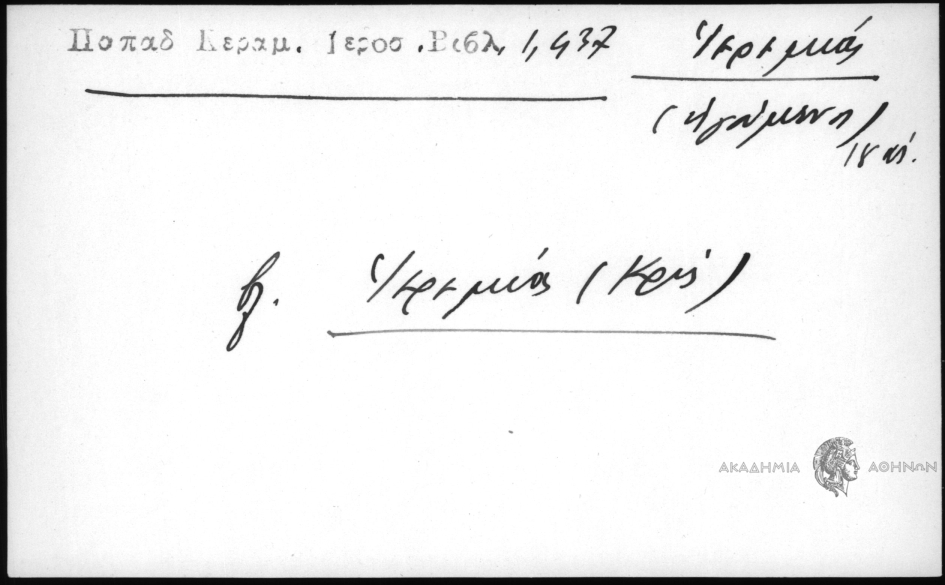 Παπαδ Κεραμ. Ιεροσ. Βιβλ. 1,437
Ἱερεμίας
(ἡγούμενος)
18 αἰ.
βλ. Ἱερεμίας (Κρής)
ΑΚΑΔΗΜΙΑ ΑΘΗΝΩΝ